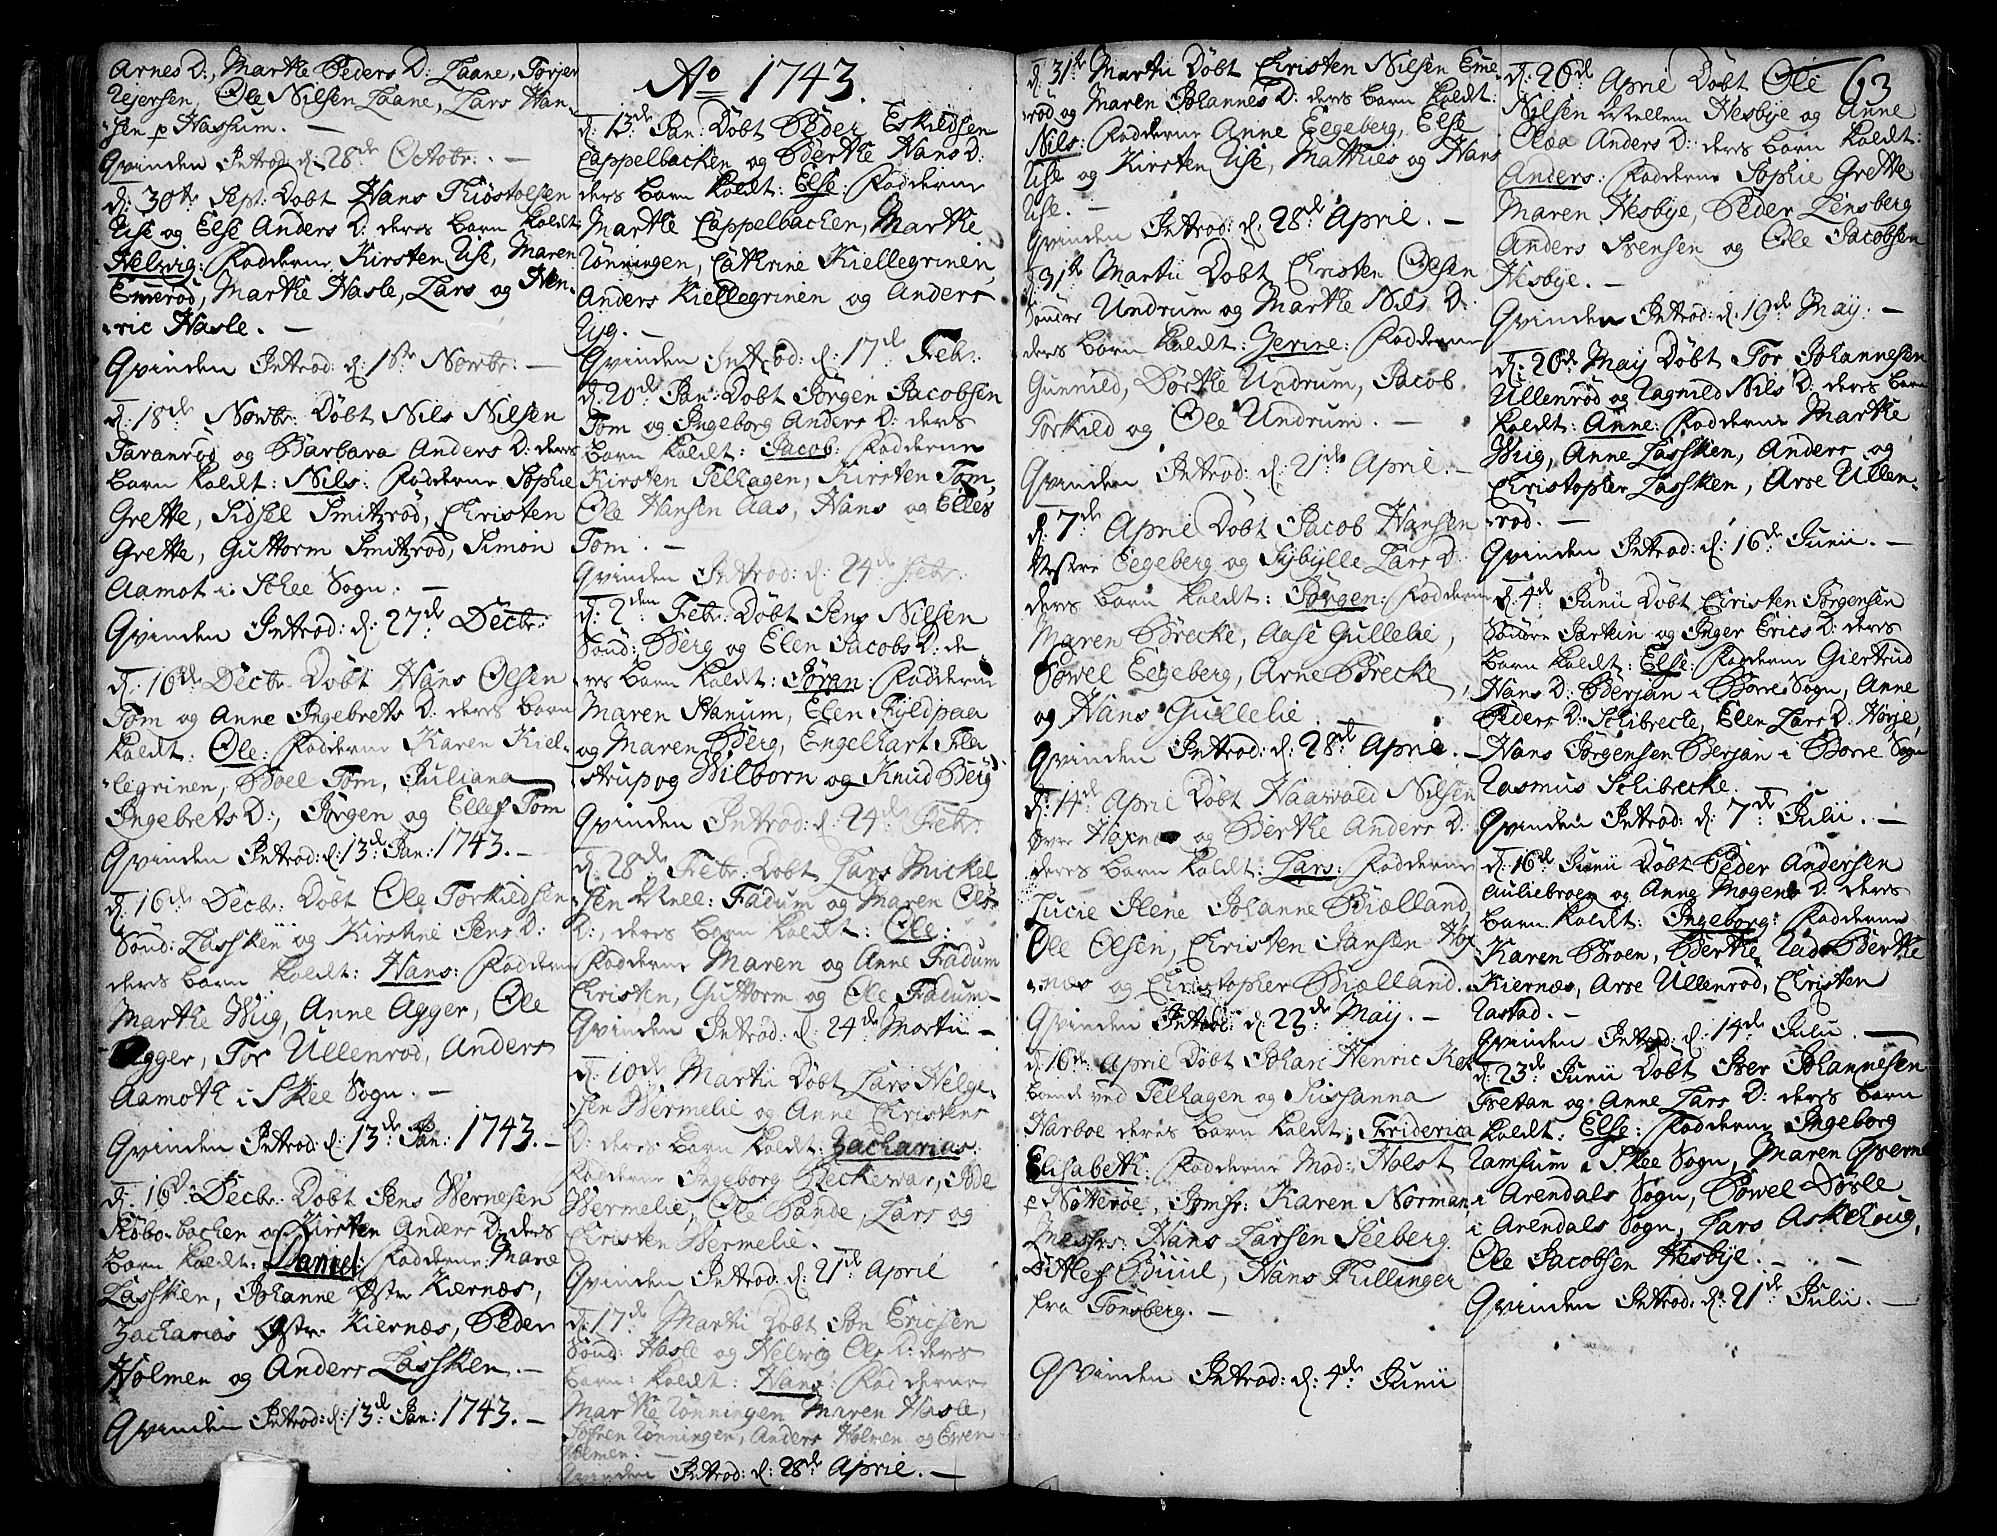 Arnes D:, Marthe Peders D: Laane, Torjer
Rejersen, Ole Nilsen Laane, Lars Han-
sen p Hassum. —
Qvinden Introd: d: 28de Octobr: —
d: 30te Sept: Døbt Hans Thiøstolsen
Use og Else Anders D: deres barn kaldt:
Helvig: Fadderne Kirsten Use, Maren
Emerød, Marthe Hasle, Lars og Hen-
ric Hasle. —
Qvinden Introd: d: 1ste Novbr: —
d: 18de Novbr: Døbt Nils Nilsen
Taranrød og Barbara Anders D: deres
barn kaldt: Nils: Fadderne Sophie
Grette, Sidsel Smitzrød, Christen
Grette, Guttorm Smitzrød, Simon
Aamot i Schee Sogn. —
Qvinden Introd: d: 27de Decbr:
d: 16de Decbr: Døbt Hans Olsen
Tom og Anne Ingebrets D: deres barn
kaldt: Ole: Fadderne Karen Kiel-
legrinen, Boel Tom, Juliana
Ingebrets D:, Jørgen og Ellef Tom
Qvinden Introd: d: 13de Jan: 1743. —
d: 16de Decbr: Døbt Ole Torkildsen
Sønd: Lassken og Kirstine Jens D:
deres barn kaldt: Hans: Fadderne
Marthe Wiig, Anne Agger, Ole
Agger, Tor Ullenrød, Anders
Aamoth i Skee Sogn. —
Qvinden Introd: d: 13de Jan: 1743. —
d: 16de Decbr: Døbt Jens Wernesen
backen og Kirsten Anders D: deres
barn kaldt: Daniel: Fadderne: Mare
Lassken, Johanne Østre Kiernæs,
Zacharias Østre Kiernæs, Peder
Holmen og Anders Lassken. —
Qvinden Introd: d: 13de Jan: 1743. —
Ao 1743.
d: 13de Jan: Døbt Peder Eskildsen
Cappelbacken og Berthe Hans D:
deres barn kaldt: Else: Fadderne
Marthe Cappelbachen, Marthe
Rønningen, Cathrine Kiellegrinen,
Anders Kiellegrinen og Anders
—
Qvinden Introd: d: 17de Febr:
d: 20de Jan: Døbt Jørgen Jacobsen
Tom og Ingeborg Anders D: deres
barn kaldt: Jacob: Fadderne
Kirsten Telhagen, Kirsten Tom,
Ole Hansen Aas, Hans og Ellef
Tom. —
Qvinden Introd: d: 24de Febr:
d: 2den Febr: Døbt Jens Nilsen
Sønd: Berg og Elen Jacobs D: de-
res barn kaldt: Jøran: Fadderne
Maren Stanum, Elen Fyldpaa
og Maren Berg, Engelhart Fla
strup og Wilborn og Knud Berg
Qvinden Introd: d: 24de Febr:
d: 28de Febr: Døbt Lars Mickel
sen Mell: Fadum og Maren Ols
D:, deres barn kaldt: Ole:
Fadderne Maren og Anne Fadum
Christen, Guttorm og Ole Fadum—
Qvinden Introd: d: 24de Martii —
d: 10de Martii Døbt Lars Helge
sen Wermelie og Anne Christens
D: deres barn kaldt: Zacharias:
Fadderne Ingeborg Reckevar,
Wermelie, Ole Sande, Lars og
Christen Wermelie.
Qvinden Introd: d: 21de April
d: 17de Martii Døbt Jon Ericsen
Sønd: Hasle og Helvig Ols D: deres
barn: kaldt: Hans: Fadderne
Marthe Rønningen Maren Hasle,
Søfren Rønningen, Anders Holmen og Even
Holmen. —
Qvinden Introd: d: 28de April. —
d: 31te Martii Døbt Christen Nilsen Eme-
rød og Maren Johannes D: deres barn kaldt:
Nils: Fadderne Anne Eegeberg, Else
Use og Kirsten Use, Mathies og Hans
Use. —
Qvinden Introd: d: 28de April. —
d: 31te Martii Døbt Christen Olsen
Søndre Undrum og Marthe Nils D:
deres barn kaldt: Zerine: Fadderne
Gunnild, Dorthe Undrum, Jacob
Torkild og Ole Undrum. —
Qvinden Introd: d: 21de April. —
d: 7de April Døbt Jacob Hansen
Vestre Eegeberg og Sybylle Lars D:
deres barn kaldt: Jørgen: Fadderne
Maren Brecke, Aase Gullelie,
Powel Eegeberg, Arne Brecke,
og Hans Gullelie.
Qvinden Introd: d: 28de April. —
d: 14de April Døbt Haarvald Nilsen
over Hexnæs og Berthe Anders D:
deres barn kaldt: Lars: Fadderne
Lucie Johanne Biælland,
Ole Olsen, Christen Jansen Hex
næs og Christopher Biælland.
Qvinden Introd: d: 23de Maij. —
d: 16de April Døbt Johan Henric
bænde ved Telhagen og Susanna
Harboe deres barn kaldt: Friderica
Elisabeth: Fadderne Mad: Holst
p Nøtterøe, Jomfr: Karen Norman
Messrs: Hans Larsen Seeberg.
Ditlef, Hans Thillinger
fra Tønsberg. —
Qvinden Introd: d: 4de Junii
63
d: 26de April Døbt Ole
Nilsen Mellem Hesbye og Anne
Olæa Anders D: deres barn kaldt:
Anders: Fadderne Sophie Grette
Maren Hesbye, Peder Lensberg
Anders Svensen og Ole Jacobsen
Hesbye. —
Qvinden Introd: d: 19de Maij. —
d: 26de Maij Døbt Tor Johannesen
Ullenrød og Ragnild Nils D: deres barn
kaldt: Anne: Fadderne Marthe
Wiig, Anne Lassken, Anders og
Christopher Lassken, Arse Ullen-
rød. —
Qvinden Introd: d: 16de Junii. —
d: 4de Junii Døbt Christen Jørgensen
Søndre Jarken og Inger Erics D: deres
barn kaldt: Else: Fadderne Giertrud
Hans D: Berjan i Borre Sogn, Anne
Peders D: Schibrecke, Elen Lars D: Horje,
Hans Jørgensen Berjan i Borre Sogn
Rasmus Schibrecke.
Qvinden Introd: d: 7de Julii. —
d: 16de Junii Døbt Peder Andersen
Auliebroen og Anne Mogens D: deres
barn kaldt: Ingeborg: Fadderne
Karen Broen, Berthe Berthe
Kiernæs, Arse Ullenrød, Christen
Rastad. —
Qvinden Introd: d: 14de Julii. —
d: 23de Junii Døbt Iver Johannesen
Fretan og Anne Lars D: deres barn
kaldt: Else: Fadderne Ingeborg
Ramsum i Skee Sogn, Maren
i Arendals Sogn, Powel Døsle
i Arendals Sogn, Lars Askehoug,
Ole Jacobsen Hesbye. —
Qvinden Introd: d: 21de Julii. —